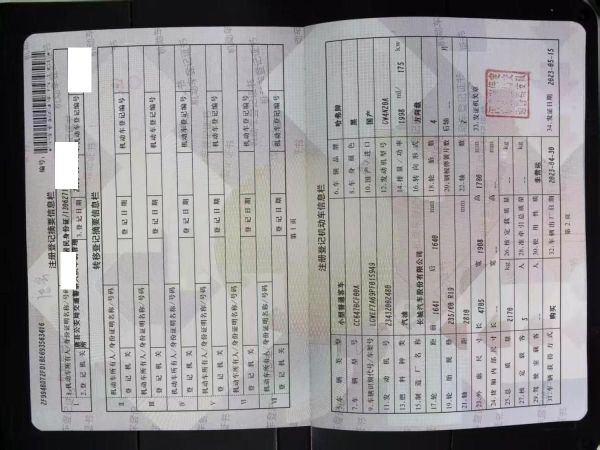 注册登记摘要信息栏
1.机动车所有人/身份证明名称/号码
居民身份证/
2.登记机关
3.登记日期
机动车登记编号
转移登记摘要信息栏
机动车所有人/身份证明名称/号码
登记机关
登记日期
机动车登记编号
机动车所有人/身份证明名称/号码
登记机关
登记日期
机动车登记编号
机动车所有人/身份证明名称/号码
登记机关
登记日期
机动车登记编号
机动车所有人/身份证明名称/号码
登记机关
登记日期
机动车登记编号
机动车所有人/身份证明名称/号码
登记机关
登记日期
机动车登记编号
机动车所有人/身份证明名称/号码
登记机关
登记日期
机动车登记编号
第1页
注册登记机动车信息栏
5.车辆类型 小型普通客车 6.车辆品牌 哈弗牌
7.车辆型号 8.车身颜色 黑
9.车辆识别代号/车架号 10.国产/进口 国产
11.发动机号 12.发动机型号 GW4N20A
13.燃料种类 汽油 14.排量/功率 1998 ml/ 175 kw
15.制造厂名称 长城汽车股份有限公司 16.转向形式 方向盘
17.轮距 前 1641 后 1640 mm 18.轮胎数 4
19.轮胎规格 235/60 R19 20.钢板弹簧片数 后轴 -- 片
21.轴距 2810 mm 22.轴数 2
23.外廓尺寸 长 4705 宽 1908 高 1780 mm 33.发证机关章
24.货箱内部尺寸 长 -- 宽 -- 高 -- mm
25.总质量 2170 kg 26.核定载质量 -- kg
27.核定载客 5 人 28.准牵引总质量 -- kg
29.驾驶室载客 -- 人 30.使用性质 非营运
31.车辆获得方式 购买 32.车辆出厂日期 2023-04-30 34.发证日期 2023-05-15
第2页